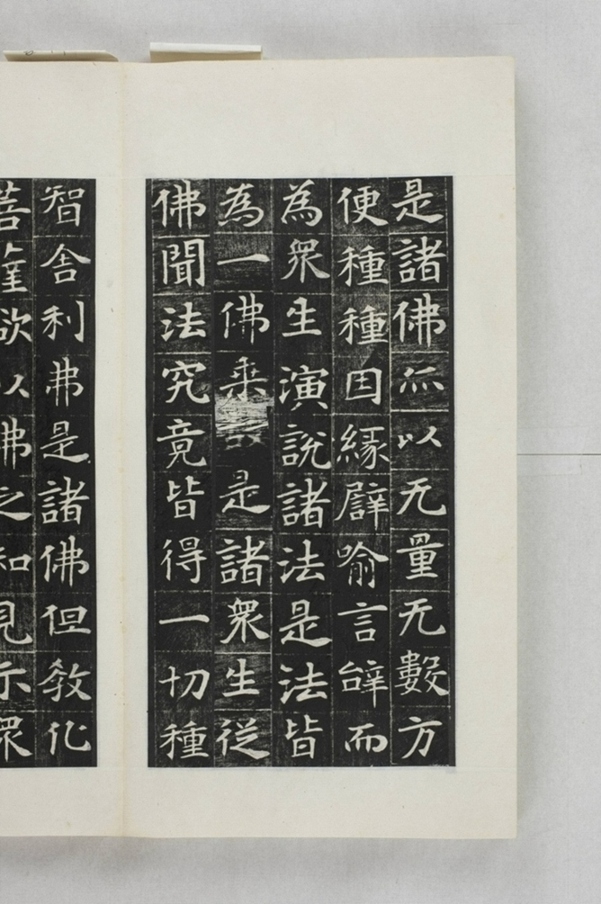 是諸佛亦以无量无數方
便種種因緣辟喻言辝而
為衆生演說諸法是法皆
為一佛乘是諸衆生從
佛聞法究竟皆得一切種
智舍利弗是諸佛但教化
菩薩欲以佛之知見示衆